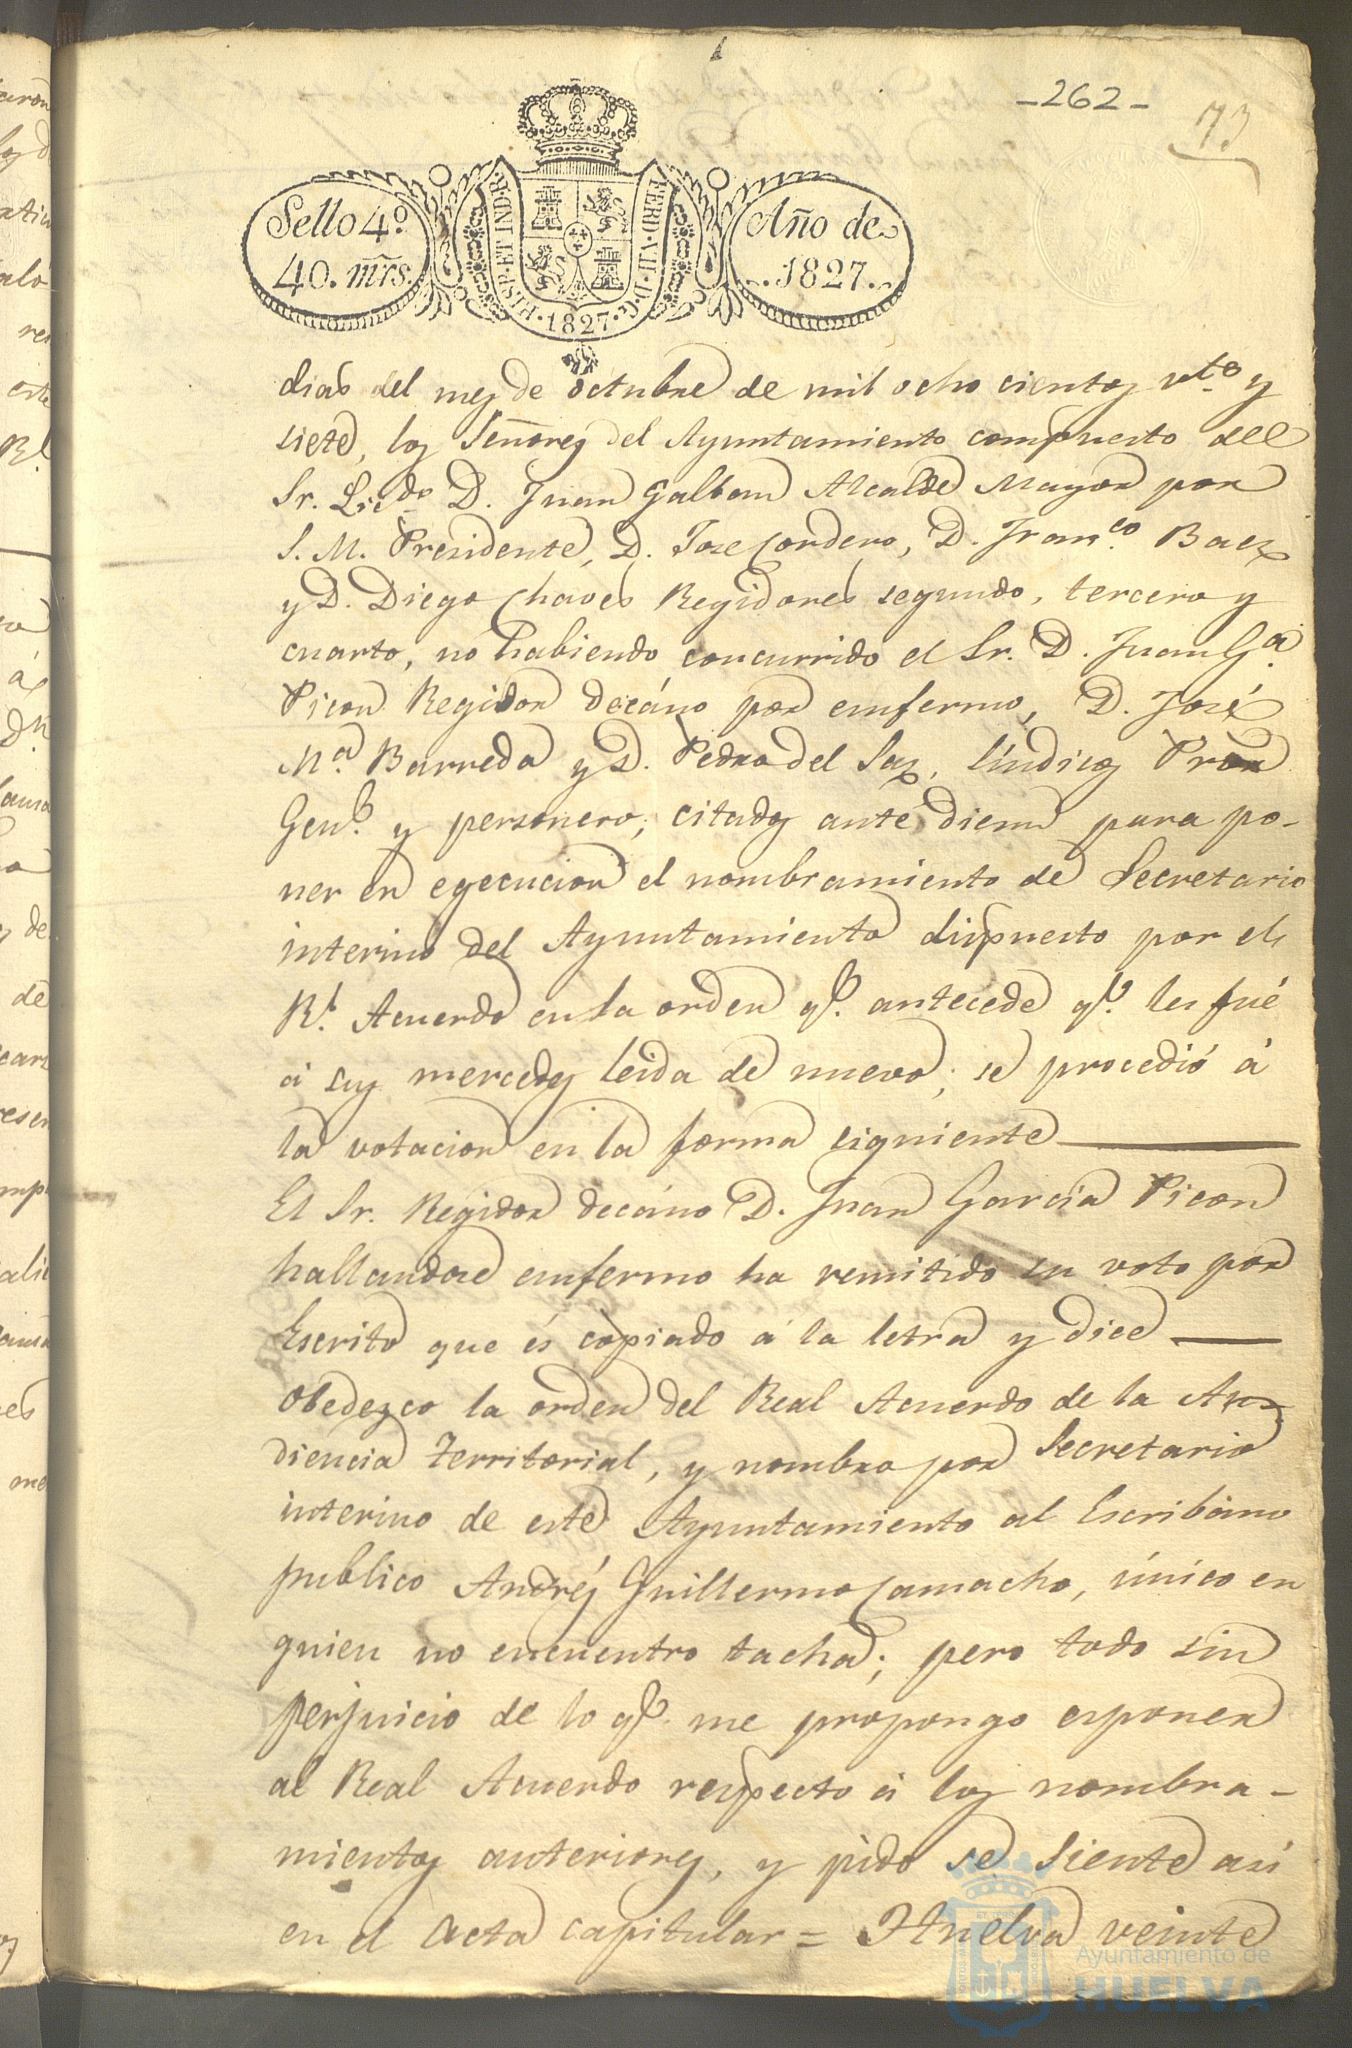 -262-
73
Sello 4.º
40. mrs.
HISP. ET IND. R.
FERD. VII. D. G.
1827
Año de
1827.
dias del mes de octubre de mil ocho cientos vte. y
siete, los Señores del Ayuntamiento compuesto del
Sr. Licdo. D. Juan Galban Alcalde Mayor por
S. M. Presidente, D. Jose Cordero, D. Franco. Baez
y D. Diego Chaves Regidores segundo, tercero y
cuarto, no habiendo concurrido el Sr. D. Juan Ga.
Picon Regidor decáno por emfermo, D. José
Ma. Barreda y D. Pedro del Saz, Síndicos Pror
Genl. y personero; citados ante diem para po-
ner en egecucion el nombramiento de Secretario
interino del Ayuntamiento dispuesto por el
Rl. Acuerdo en la orden qe. antecede qe. les fué
á sus mercedes leida de nuevo; se procedió á
la votacion en la forma siguiente
El Sr. Regidor decáno D. Juan Garcia Picon
hallandose emfermo ha remitido su voto por
Escrito que és copiado á la letra y dice
Obedezco la orden del Real Acuerdo de la Au-
diencia Territorial, y nombro por Secretario
interino de este Ayuntamiento al Escribano
publico Andrés Guillermo Camacho, único en
quien no encuentro tacha; pero todo sin
perjuicio de lo qe. me propongo esponer
al Real Acuerdo respecto á los nombra-
mientos anteriores, y pido se siente asi
en el Acta capitular = Huelva veinte
Ayuntamiento de
HUELVA